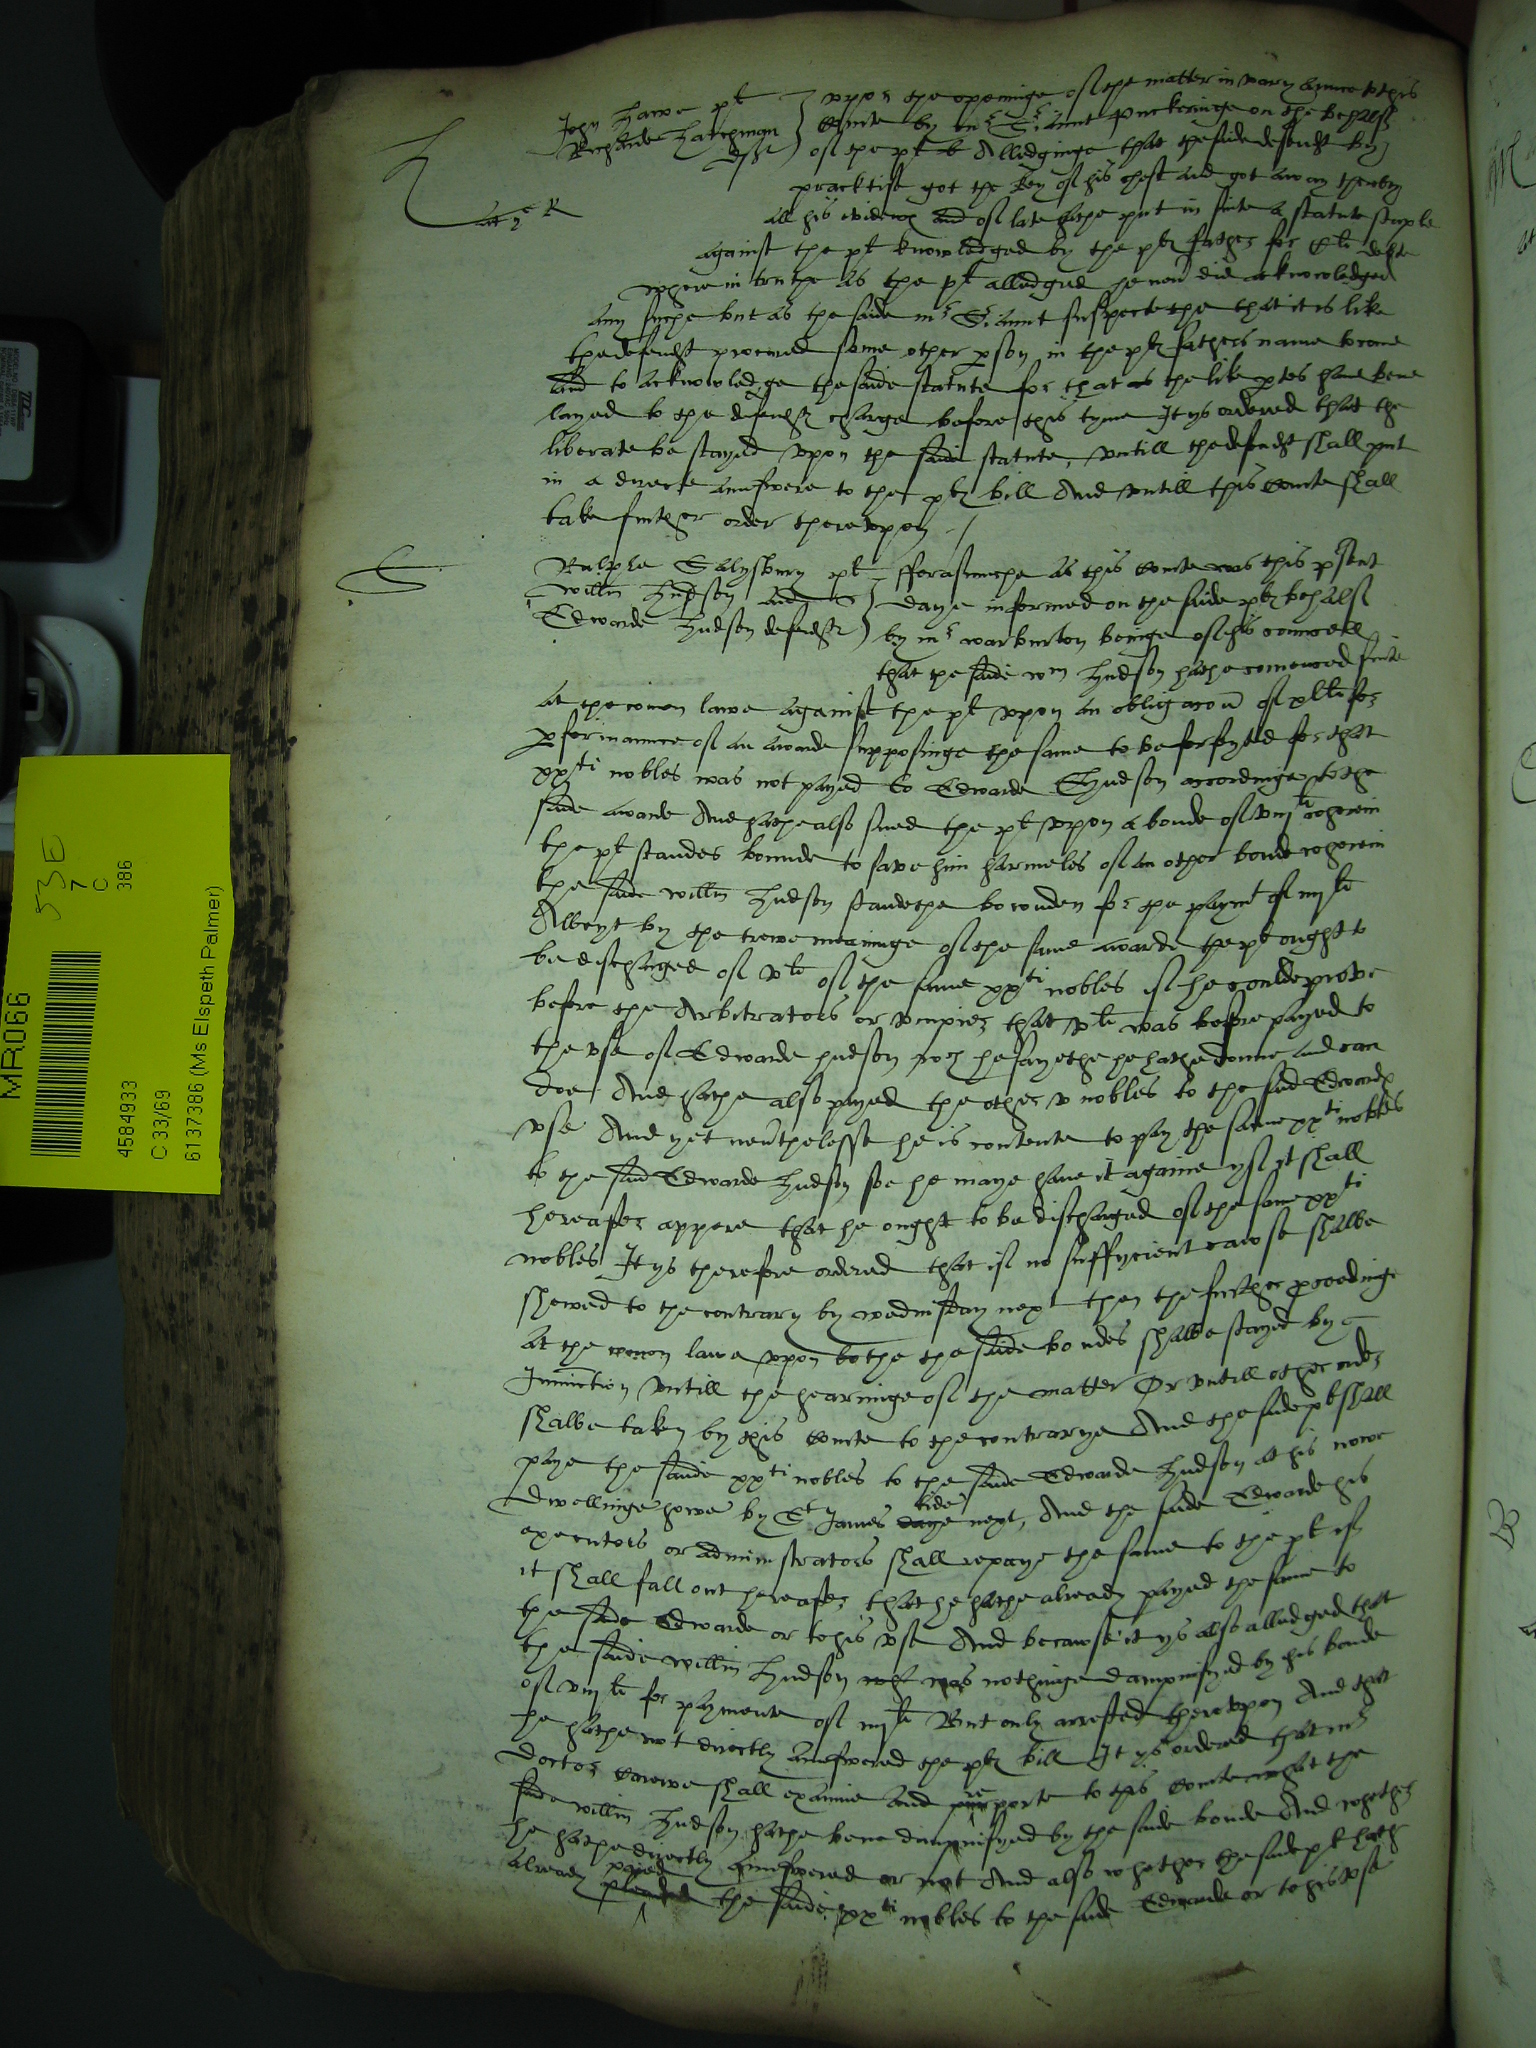 John Hawe plt
Richarde Hatchman
deft
Uppon the openinge of the matter in
Courte by mr Seriaunt Puckeringe on the behalf
of the plt Alledginge that the saide defendt by
practise got the key of his chest and got away therby
all his evidence and of late hathe put in suite a statute staple
against the plt knowledged by the pltes father for Cli debte
where in truthe as the plt alledged he nev did acknowledged
any suche but as the saide mr Seriaunt suspectethe that it is like
the defendt procured some other pson in the pltes fathers name to come
and to acknowledge the saide statute for that as the like ptes have bene
layed to the defendtes charge before this tyme It ys ordered that the
liberate be stayed vpon the saide statute, vntill the defendt shall put
in a directe aunswere to the pltes bill And vntill this Courte shall
take further order therevpon /
Ralphe Salysbury plt
Willm Hudson and
Edwarde Hudson defendtes
fforasmuche as this Courte was this psent
daye informed on the saide pltes behalf
by mr warburton beinge of his councell
that the saide wm Hudson hathe comenced suite
at the comon lawe against the plt vpon an obligacon of xlli for
pformaunce of an awarde supposinge the same to be forfyted for that
xxti nobles was not payed to Edwarde Hudson accordinge to the
saide awarde And hathe also sued the plt vpon a bonde of viijli wherein
the plt standes bounde to save him harmeles of an other bonde wherein
the saide willm Hudson standethe bounden for the paymt of iiijli
Albeyt by the trewe meaninge of the same awarde the plt ought to
be discharged of vli of the same xxti nobles if he coulde prove
before the Arbitrators or vmpier that vli was before payed to
the vse of Edwarde hudson wch he sayethe he hathe donne and can
doe And hathe also payed the other v nobles to the said Edwardes
vse And yet nevthelesse he is contente to pay the same xxti nobles
to the said Edwarde Hudson soe he maye have it againe yf it shall
hereafter appere that he ought to be discharged of the same xxti
nobles It ys therefore ordered that if no suffycient cawse shalbe
shewed to the contrary by wednisday next then the further pceedinge
at the comon lawe vpon bothe the saide bondes shalbe stayed by
Iniunction vntill the hearinge of the matter Or vntill other order
shalbe taken by this Courte to the contrarye And the saide plt shall
paye the saide xxti nobles to the saide Edwarde Hudson at his nowe
dwellinge howse by St James daye tide next, And the saide Edwarde his
executors or administrators shall repaye the same to the plt if
it shall fall out hereafter that he hathe already payed the same to
the saide Edwarde or to his vse And becawse it ys also alledged that
the saide willm Hudson was nothinge dampnifyed by his bonde
of viijli for paymente of iiijli But only arrested therevpon And that
he hathe not directly aunswered the pltes bill It ys ordered that mr
doctor Carewe shall examine and reporte to this Courte what the
saide willm Hudson hathe bene dampnifyed by the saide bonde And whether
he hathe directly aunswered or not And also whether the saide plt hath
already payed the saide xxti nobles to the saide Edwarde or to his vse
MR066
53E
7
C
386
4584933
C 33/69
6137386 (Ms Elspeth Palmer)